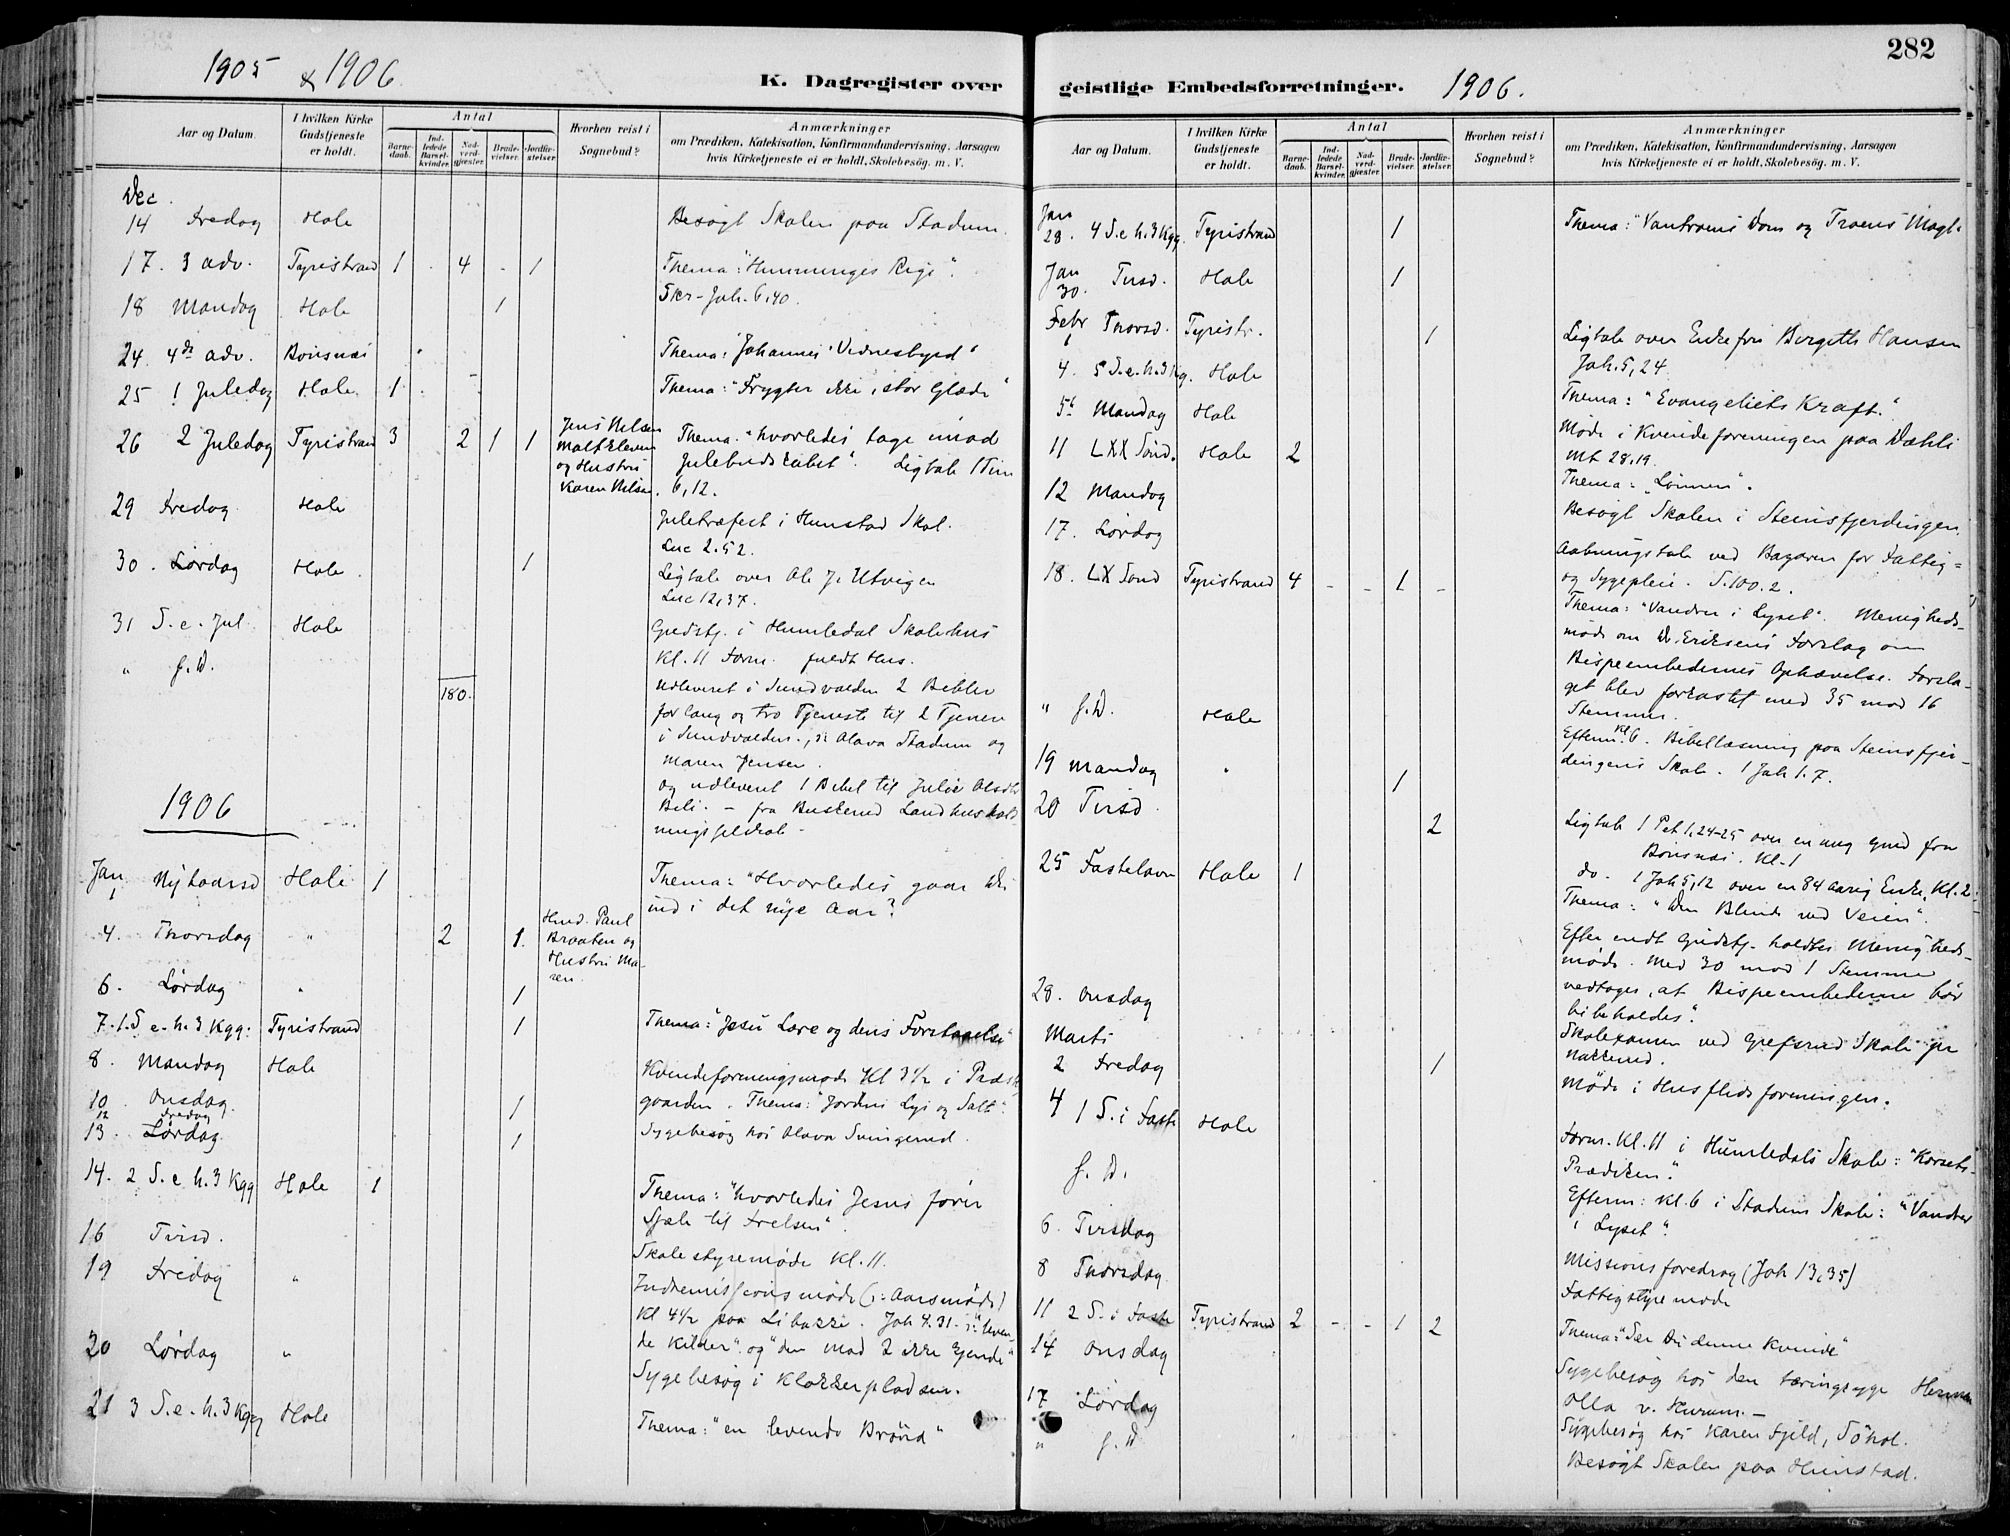 282
1905 & 1906.
K. Dagregister over
Aar og Datum.
I hvilken Kirke Gudstjeneste er holdt.
Antal
Barnedaab.
Indledede Barselkvinder.
Nadverdgjæster.
Brudevielser.
Jordfæstelser.
Hvorhen reist i Sognebud?
Anmærkninger
om Prædiken, Katekisation, Konfirmandundervisning, Aarsagen
hvis Kirketjeneste ei er holdt, Skolebesøg, m. V.
Dec.
14 Fredag Hole Besøgt Skolen paa Stadum.
17. 3 adv. Tyristrand 1 - 4 - 1 Thema: "Himmeriges Rige".
Skr- Joh. 6,40.
18 Mandag Hole 1
24. 4de adv. Bønsnæs Thema: "Johannes Vidnesbyrd"
25 1 Juledag Hole 1 Thema: "Frygter ikke, stor Glæde"
26 2 Juledag Tyristrand 3 2 1 1 Jens Nilsen Thema: "hvorledes tage imod
og Hustru Julebudskabet". Ligtale 1 Tim
Karen Nilsen. 6,12.
29 Fredag Hole Juletræfest i Hunstad Skol.
Luc 2.52.
30. Lørdag Hole. 1 Ligtale over Ole J. Utvigen
Luc 12,37.
31 S. e. Jul Hole Gudstj. i Humledal Skolehus
" f. D. Kl. 11 Form. fuldt Hus.
180. Udleveret i Sundvolden 2 Bibler
for lang og tro Tjeneste til 2 Tjenere
i Sundvolden, Olava Stadum og
Maren Jensen.
og udleveret 1 Bibel til Julie Olsdtr
Beli. - fra Buskerud Landhushold-
ningsselskab -
1906
Jan
1 Nytaarsd Hole 1 Thema: "Hvorledes gaar Du
ind i det nye Aar?
4. Thorsdag " 2 1. Husm. Paul
Braaten og
Hustru Ma-
ren.
6. Lørdag " 1
7. 1. S e. h. 3 Kgg. Tyristrand 1 Thema: "Jesu Lære og dens Forstaaelse"
8. Mandag Hole Kvindeforeningsmøde Kl 3½ i Præst-
10. Onsdag. 1 gaarden. Thema: "Jordens Lys og Salt".
12 Fredag
13. Lørdag 1 Sygebesøg hos Olava Svingerud.
14. 2 S. e h. 3 Kgg Hole 1 Thema: "hvorledes Jesus fører
Sjæle til Frelsen".
16 Tirsd. Skolestyremøde Kl. 11.
19 Fredag " Indremissionsmøde (: Aarsmøde)
Kl 4½ paa Libakke. Joh 4.31 - : "leven-
de Kilder" og "den mad I ikke kjende"
20 Lørdag " Sygebesøg i Klokkerpladsen.
21 3 S. e. h. 3 Kgg Hole Thema: "en levende Brønd"
geistlige Embedsforretninger. 1906.
Aar og Datum.
I hvilken Kirke Gudstjeneste er holdt.
Antal
Barnedaab.
Indledede Barselkvinder.
Nadverdgjæster.
Brudevielser.
Jordfæstelser.
Hvorhen reist i Sognebud?
Anmærkninger
om Prædiken, Katekisation, Konfirmandundervisning, Aarsagen
hvis Kirketjeneste ei er holdt, Skolebesøg, m. V.
Jan
28. 4 S. e h. 3 Kgg. Tyristrand 1 Thema: "Vantroens Dom og Troens Magt"
Jan
30. Tirsd. Hole 1
Febr
1 Thorsd. Tyristr. 1 Ligtale over Enkefru Birgitte Hansen
Joh. 5,24.
4. 5 S. e. h. 3 Kg. Hole Thema: "Evangeliets Kraft."
5te Mandag Hole Møde i Kvindeforeningen paa Dæhli
Mt 28,19.
11 LXX Sønd. Hole 2 Thema: "Lønnen".
12 Mandag Besøgt Skolen i Steinsfjerdingen.
17. Lørdag Aabningstale ved Bazaren for Fattig-
og Sygepleie. S. 100.2.
18. LX Sønd Tyristrand 4 - - 1 - Thema: "Vandrer i Lyset". Menigheds-
møde om Dr. Eriksens Forslag om
Bispeembedernes Ophævelse. Forsla-
get blev forkastet med 35 mod 16
Stemmer.
" f. D. Hole Efterm. Kl 6. Bibellæsning paa Steinsfjer-
dingens Skole. 1 Joh 1.7.
19 Mandag " 1
20 Tirsd. 2 Ligtale 1 Pet 1,24-25 over en ung Gud fra
Bønsnæs. Kl. 1
do. 1 Joh 5,12 over en 84 aarig Enke, Kl. 2.
25 Fastelavn Hole 1 Thema: "Den Blinde ved Veien".
Efter endt Gudstj. holdtes Menigheds-
møde. Med 30 mod 1 Stemme
vedtoges, at "Bispeembederne bør
bibeholdes".
28. Onsdag Skoleexamen ved Grefsrud Skole pr
Nakkerud.
Marts
2 Fredag 1 Møde i Husflidsforeningen.
4 1 S. i Faste Hole Form. Kl. 11 i Humledals Skole: "Korsets-
Prædiken."
f. D. Efterm: Kl. 6 i Stadum Skole: "Vandrer
i Lyset".
6. Tirsdag Missionsforedrag (Joh 13,35)
8 Thorsdag Fattigstyremøde
11 2 S. i Faste Tyristrand 2 - - 1 2 Thema: "Ser Du denne Kvinde"
14 Onsdag Sygebesøg hos den tæringsyge
Olla v. Kurum. -
17 Lørdag Sygebesøg hos Karen Fjeld, Søhol.
" f. D Besøgt Skolen paa Hunstad.